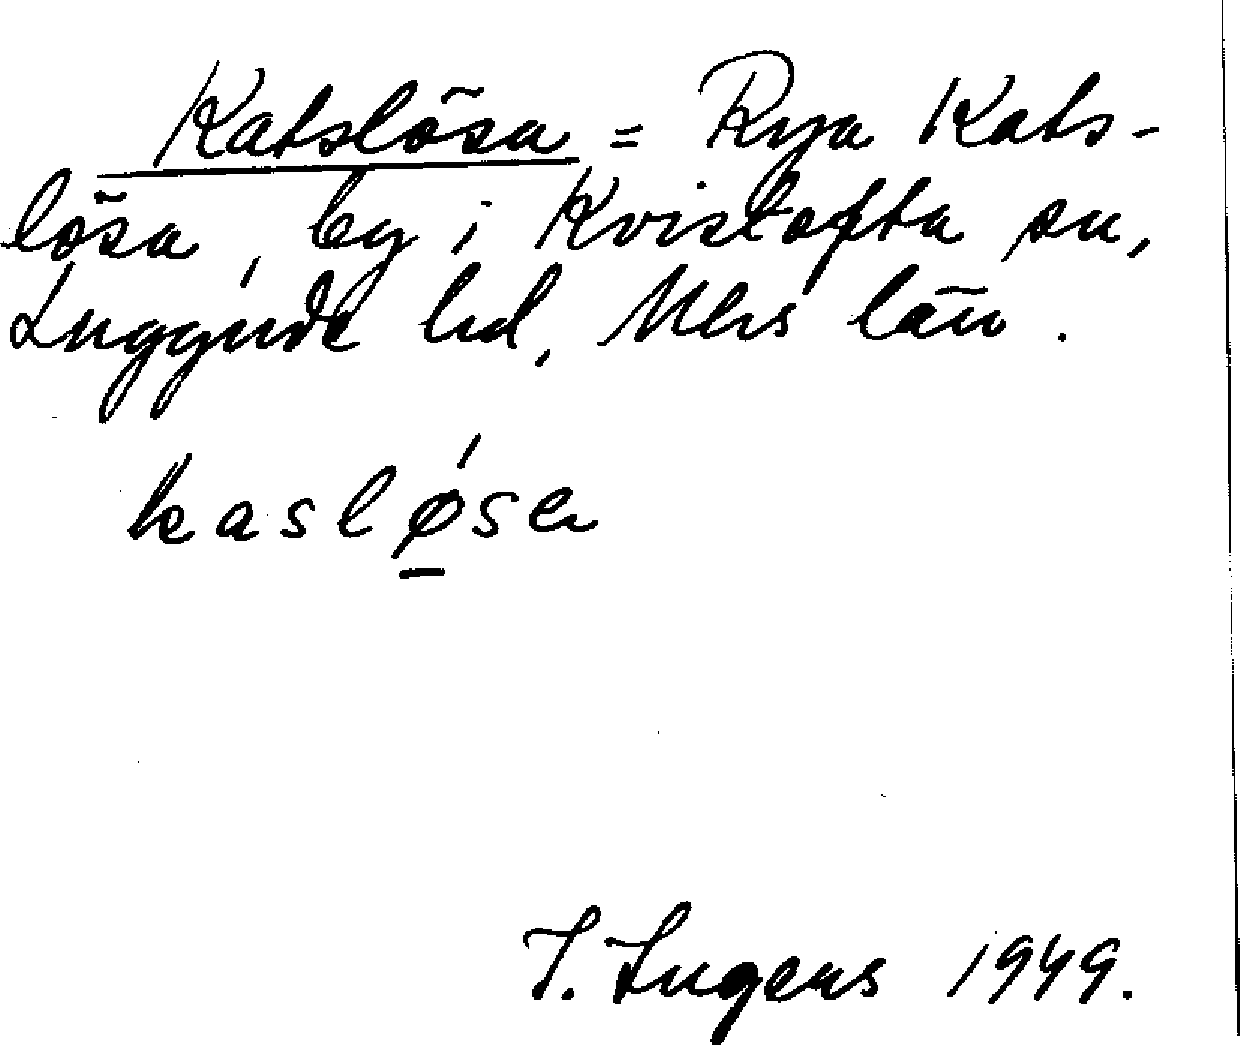 Katslösa = Rya Kats-
lösa, by i Kvistofta sn,
Luggude hd, Mhs län.
kasløsa
I. Ingers 1949.